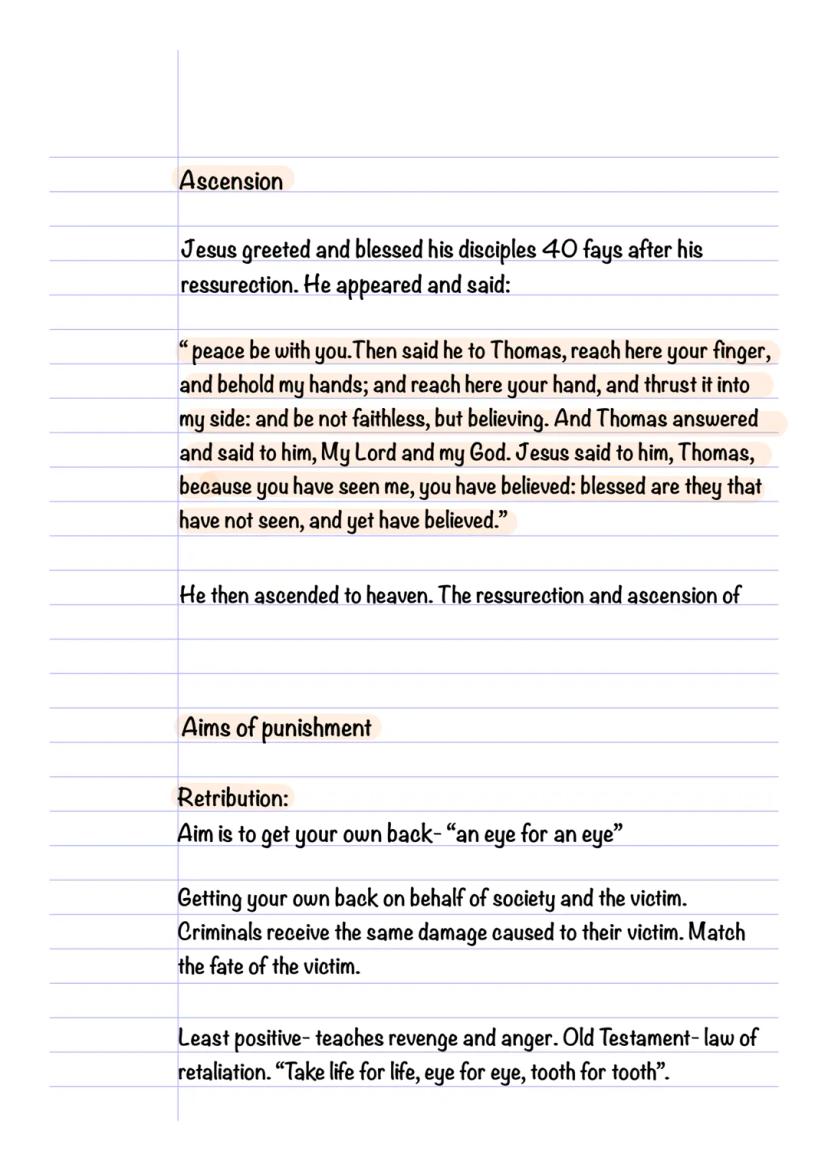 Ascension
Jesus greeted and blessed his disciples 40 fays after his
ressurection. He appeared and said:
“ peace be with you.Then said he to Thomas, reach here your finger,
and behold my hands; and reach here your hand, and thrust it into
my side: and be not faithless, but believing. And Thomas answered
and said to him, My Lord and my God. Jesus said to him, Thomas,
because you have seen me, you have believed: blessed are they that
have not seen, and yet have believed.”
He then ascended to heaven. The ressurection and ascension of
Aims of punishment
Retribution:
Aim is to get your own back- “an eye for an eye”
Getting your own back on behalf of society and the victim.
Criminals receive the same damage caused to their victim. Match
the fate of the victim.
Least positive- teaches revenge and anger. Old Testament- law of
retaliation. “Take life for life, eye for eye, tooth for tooth”.